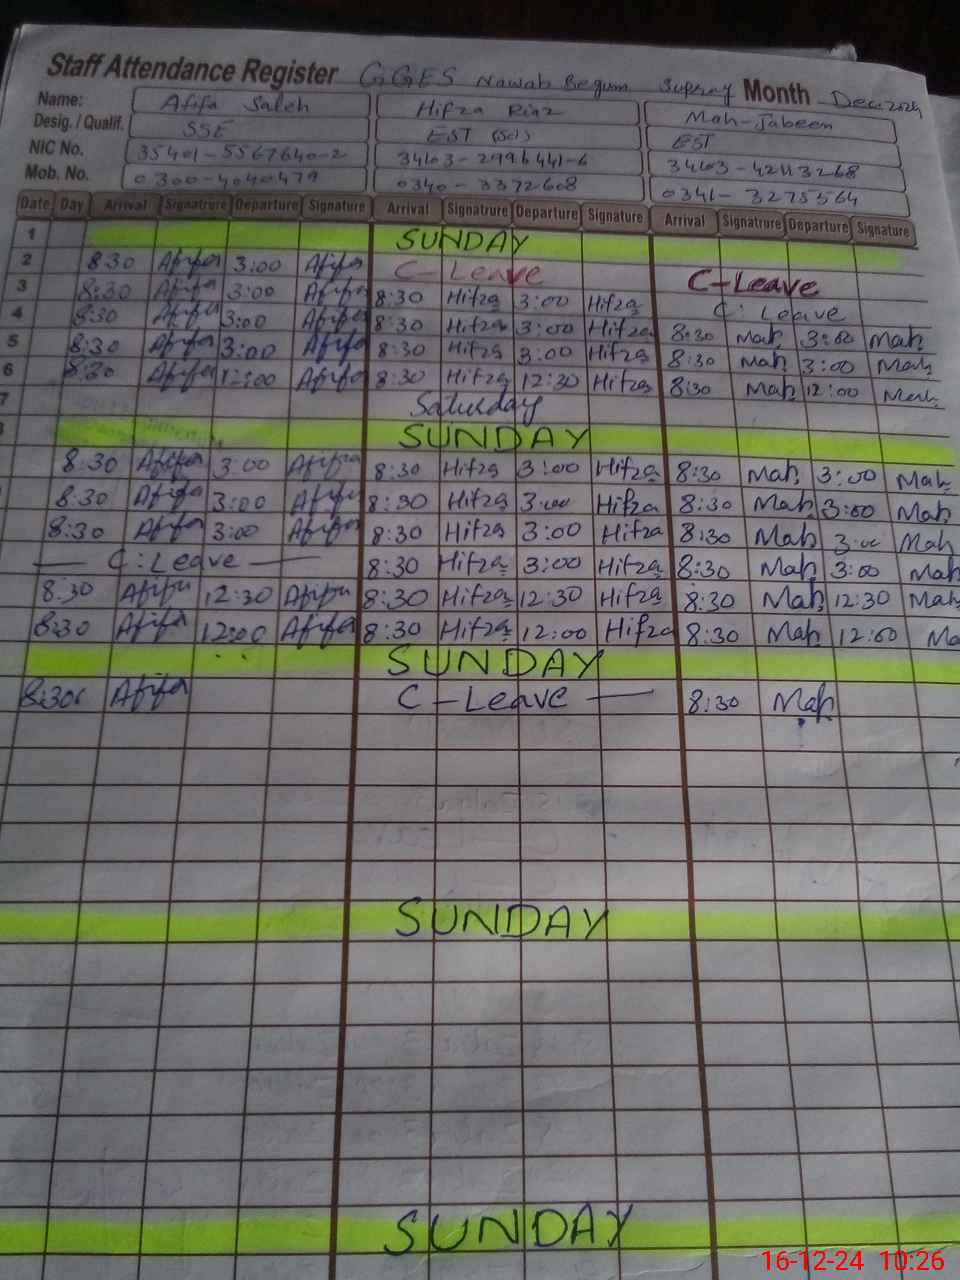 Staff Attendance Register GGES Nawab Begum Month Dec. 2024
Name: Afifa Saleh Hifza Riaz Mah-Jabeen
Desig. / Qualif. SSE EST (Sci) EST
NIC No. 35401-5567640-2 3403-2996441-6 3403-42113268
Mob. No. 0300-4040479 0340-3372608 0341-3275564
Date Day Arrival Signatrure Departure Signature Arrival Signatrure Departure Signature Arrival Signatrure Departure Signature
1 SUNDAY
2 8:30 Afifa 3:00 Afifa C-Leave C-Leave
3 8:30 Afifa 3:00 Afifa 8:30 Hifza 3:00 Hifza C: Leave
4 8:30 Afifa 3:00 Afifa 8:30 Hifza 3:00 Hifza 8:30 Mah 3:00 Mah
5 8:30 Afifa 3:00 Afifa 8:30 Hifza 3:00 Hifza 8:30 Mah 3:00 Mah
6 8:30 Afifa 12:00 Afifa 8:30 Hifza 12:30 Hifza 8:30 Mah 12:00 Mah
7 Saturday
SUNDAY
8:30 Afifa 3:00 Afifa 8:30 Hifza 3:00 Hifza 8:30 Mah 3:00 Mah
8:30 Afifa 3:00 Afifa 8:30 Hifza 3:00 Hifza 8:30 Mah 3:00 Mah
8:30 Afifa 3:00 Afifa 8:30 Hifza 3:00 Hifza 8:30 Mah 3:00 Mah
— C: Leave — 8:30 Hifza 3:00 Hifza 8:30 Mah 3:00 Mah
8:30 Afifa 12:30 Afifa 8:30 Hifza 12:30 Hifza 8:30 Mah 12:30 Mah
8:30 Afifa 12:00 Afifa 8:30 Hifza 12:00 Hifza 8:30 Mah 12:00 Ma
SUNDAY
8:30 Afifa C-Leave — 8:30 Mah
SUNDAY
SUNDAY
16-12-24 10:26